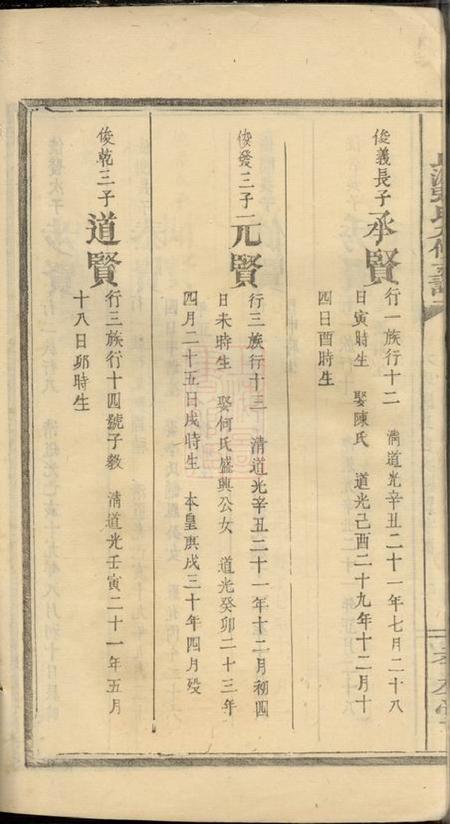 俊義長子承賢
行一族行十二 清道光辛丑二十一年七月二十八
日寅時生 娶陳氏 道光己酉二十九年十二月十
四日酉時生
俊發三子元賢
行三族行十三 清道光辛丑二十一年十二月初四
日未時生 娶何氏盛興公女 道光癸卯二十三年
四月二十五日戌時生 本皇庚戌三十年四月殁
俊乾三子道賢
行三族行十四號子教 清道光壬寅二十一年五月
十八日卯時生